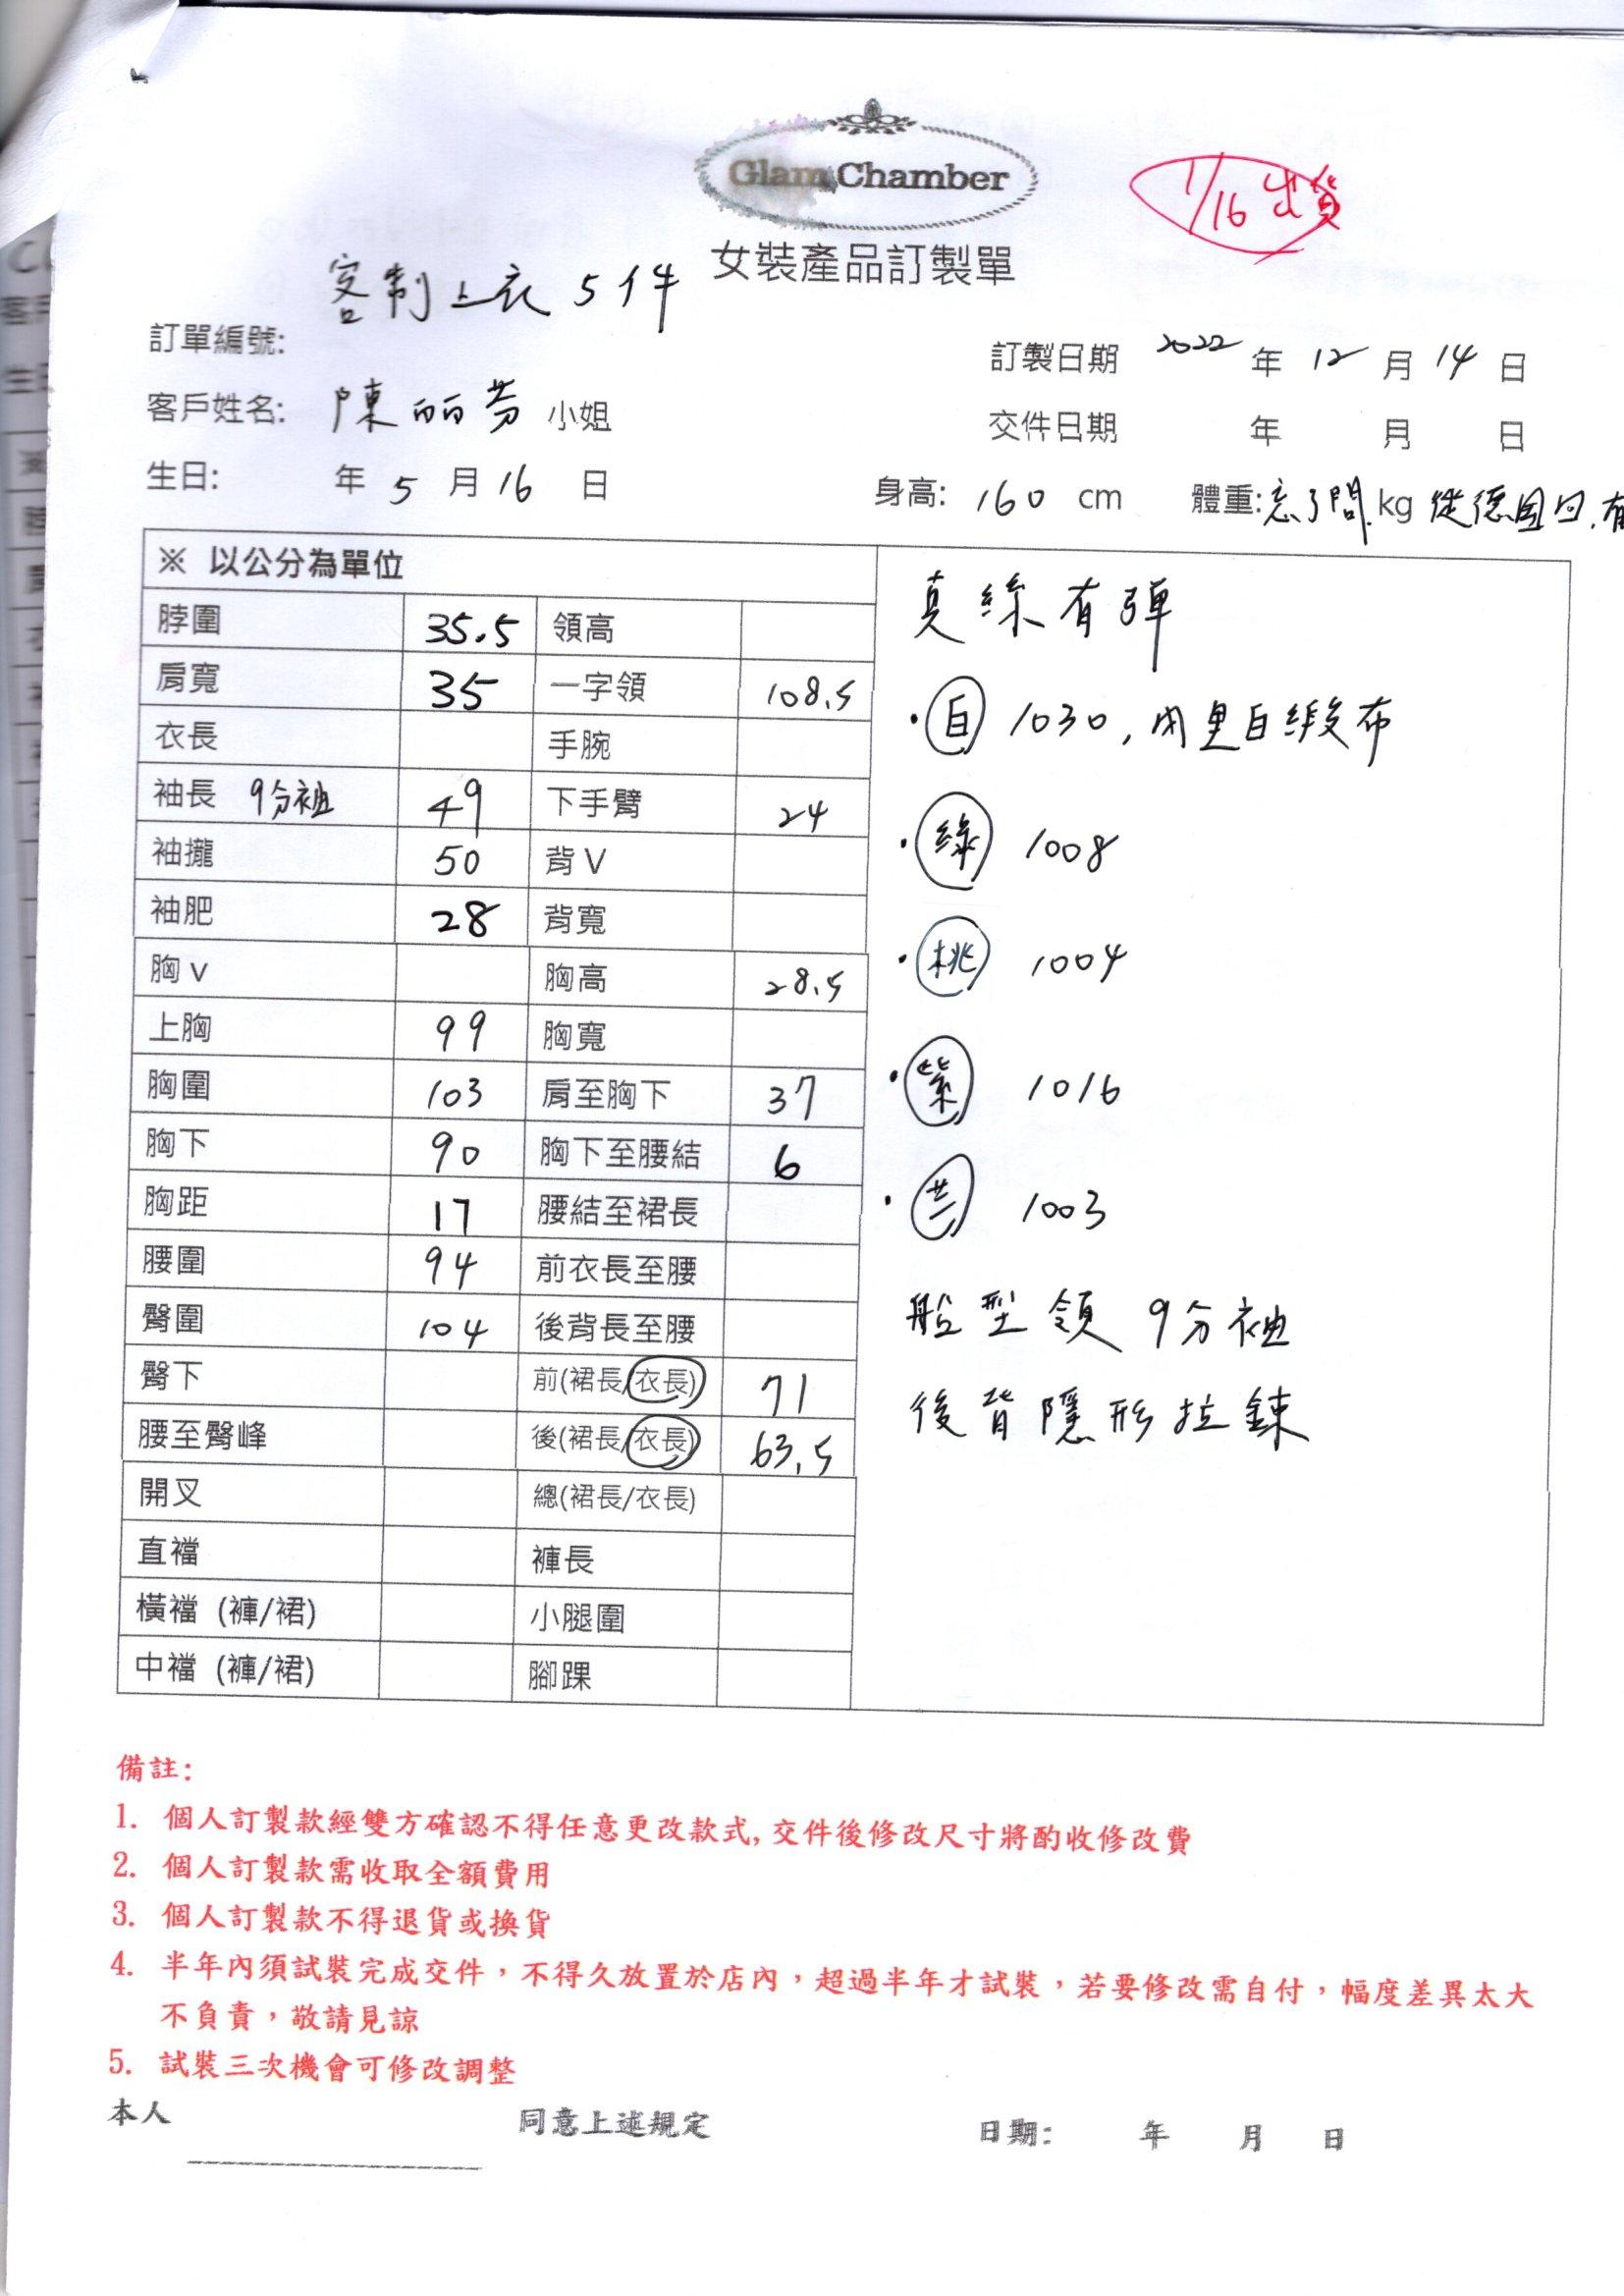 Glam Chamber
1/16 出貨
女裝產品訂製單
客制上衣5件
訂單編號:
訂製日期 2022 年 12 月 14 日
客戶姓名: 陳麗芬 小姐
交件日期 年 月 日
生日: 年 5 月 16 日
身高: 160 cm 體重: 忘了問 kg 從德國回,有
※ 以公分為單位
脖圍 35.5 領高
肩寬 35 一字領 108.5
衣長 手腕
袖長 9分袖 49 下手臂 24
袖攏 50 背V
袖肥 28 背寬
胸v 胸高 28.5
上胸 99 胸寬
胸圍 103 肩至胸下 37
胸下 90 胸下至腰結 6
胸距 17 腰結至裙長
腰圍 94 前衣長至腰
臀圍 104 後背長至腰
臀下 前(裙長/衣長) 71
腰至臀峰 後(裙長/衣長) 63.5
開叉 總(裙長/衣長)
直襠 褲長
橫襠 (褲/裙) 小腿圍
中襠 (褲/裙) 腳踝
真絲有彈
·白 1030,內里白緞布
·綠 1008
·桃 1004
·紫 1016
· 1003
船型領 9分袖
後背隱形拉鍊
備註:
1. 個人訂製款經雙方確認不得任意更改款式,交件後修改尺寸將酌收修改費
2. 個人訂製款需收取全額費用
3. 個人訂製款不得退貨或換貨
4. 半年內須試裝完成交件,不得久放置於店內,超過半年才試裝,若要修改需自付,幅度差異太大
不負責,敬請見諒
5. 試裝三次機會可修改調整
本人 同意上述規定 日期: 年 月 日